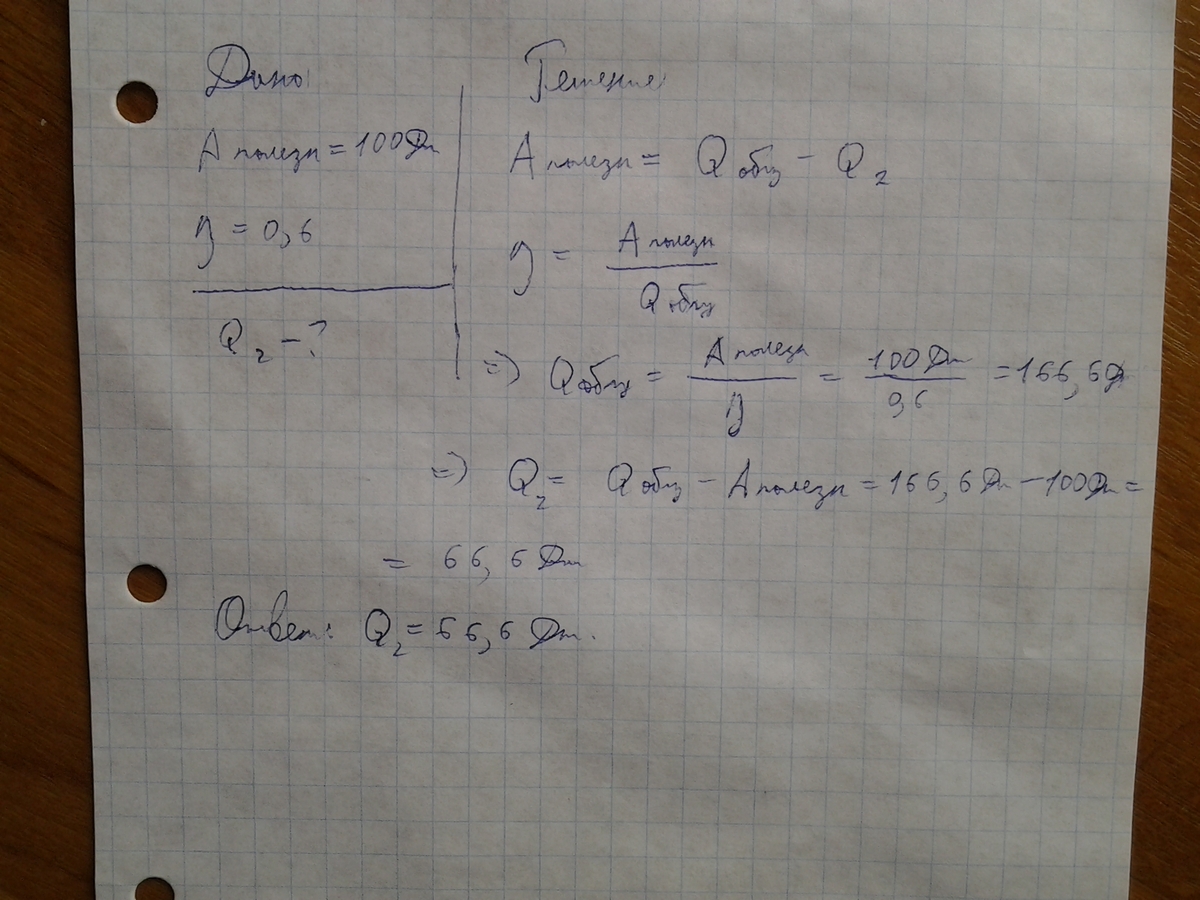 Дано
A полезн = 100 Дж
η = 0,6
Q₂ – ?
Решение
A полезн = Q общ – Q₂
η = A полезн / Q общ
=> Q общ = A полезн / η = 100 Дж / 0,6 = 166,6 Дж
=> Q₂ = Q общ – A полезн = 166,6 Дж – 100 Дж =
= 66,6 Дж
Ответ: Q₂ = 66,6 Дж.